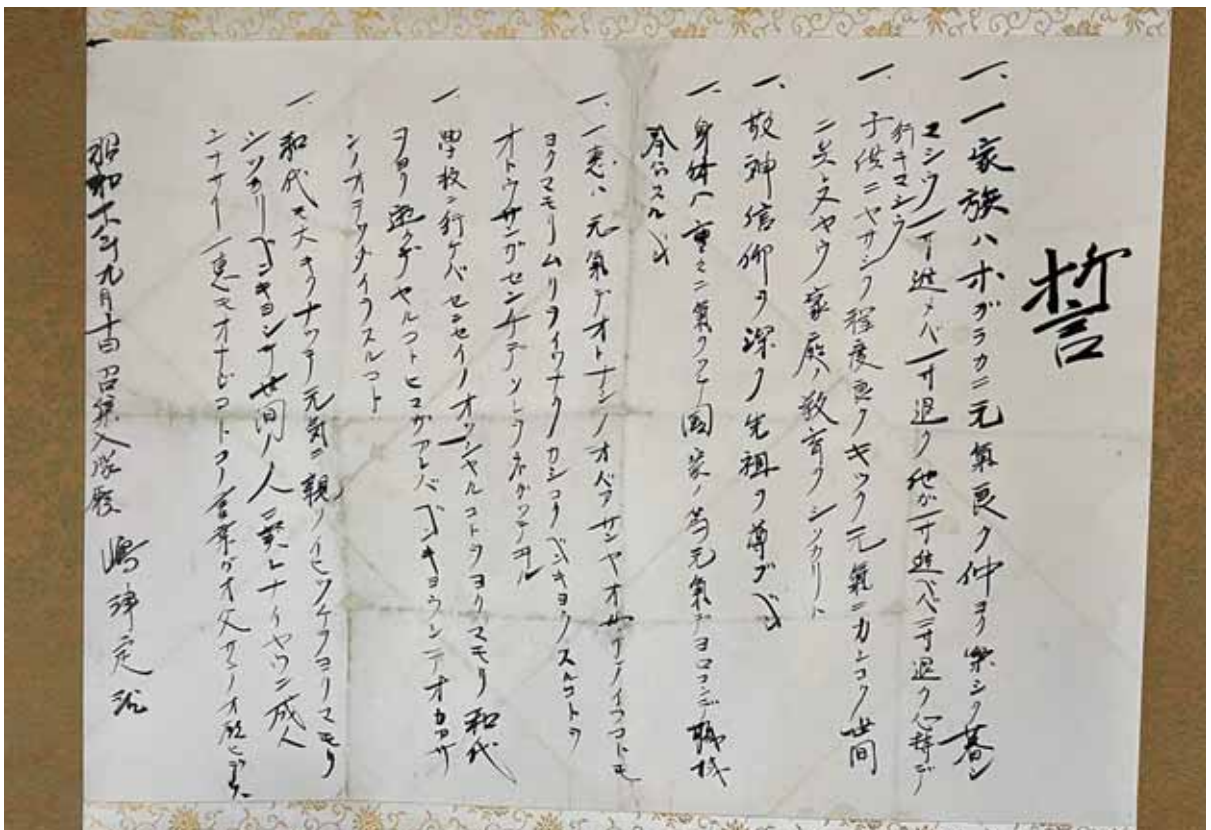 誓
一、一家族ハホガラカニ元氣良ク仲ヨク楽シク暮シ
マシウ 一寸進メバ一寸退ク他ガ一寸進ベバ二寸退ク心持デ
行キマシウ
一、子供ニヤサシク程度良クキック元氣ニカシコク世間
ニ笑ハレヌヤウ家庭ノ教育ヲシッカリト
一、敬神信仰ヲ深ク先祖ヲ尊ブベシ
一、身体ハ重々ニ氣ヲツケ国家ノ為元氣デヨロコンデ職域
奉公スルベシ
一、一恵ハ元氣デオトナシクオバアサンヤオカアサンノイフコトモ
ヨクマモリムリヲイワナクカシコクベンキヨウスルコトヲ
オトウサンガセンチデイノリネガッテヰル
一、學校ニ行ケバセンセイノオッシャルコトヲヨクマモリ和代
ヲヨク遊ンデヤルコトヒマガアレバベンキヨウシテオカアサ
ンノオテツダイヲスルコト
一、和代モ大キクナッテ元気ニ親ノイヒツケヲヨクマモリ
シッカリベンキヨシテ世間ノ人ニ笑ハレナイヤウニ成人
シナサイ一恵モオナジコトコノ言葉ガオ父サンノオ願ヒデス
昭和十八年九月十四日召集入隊ノ際 嶋津定治